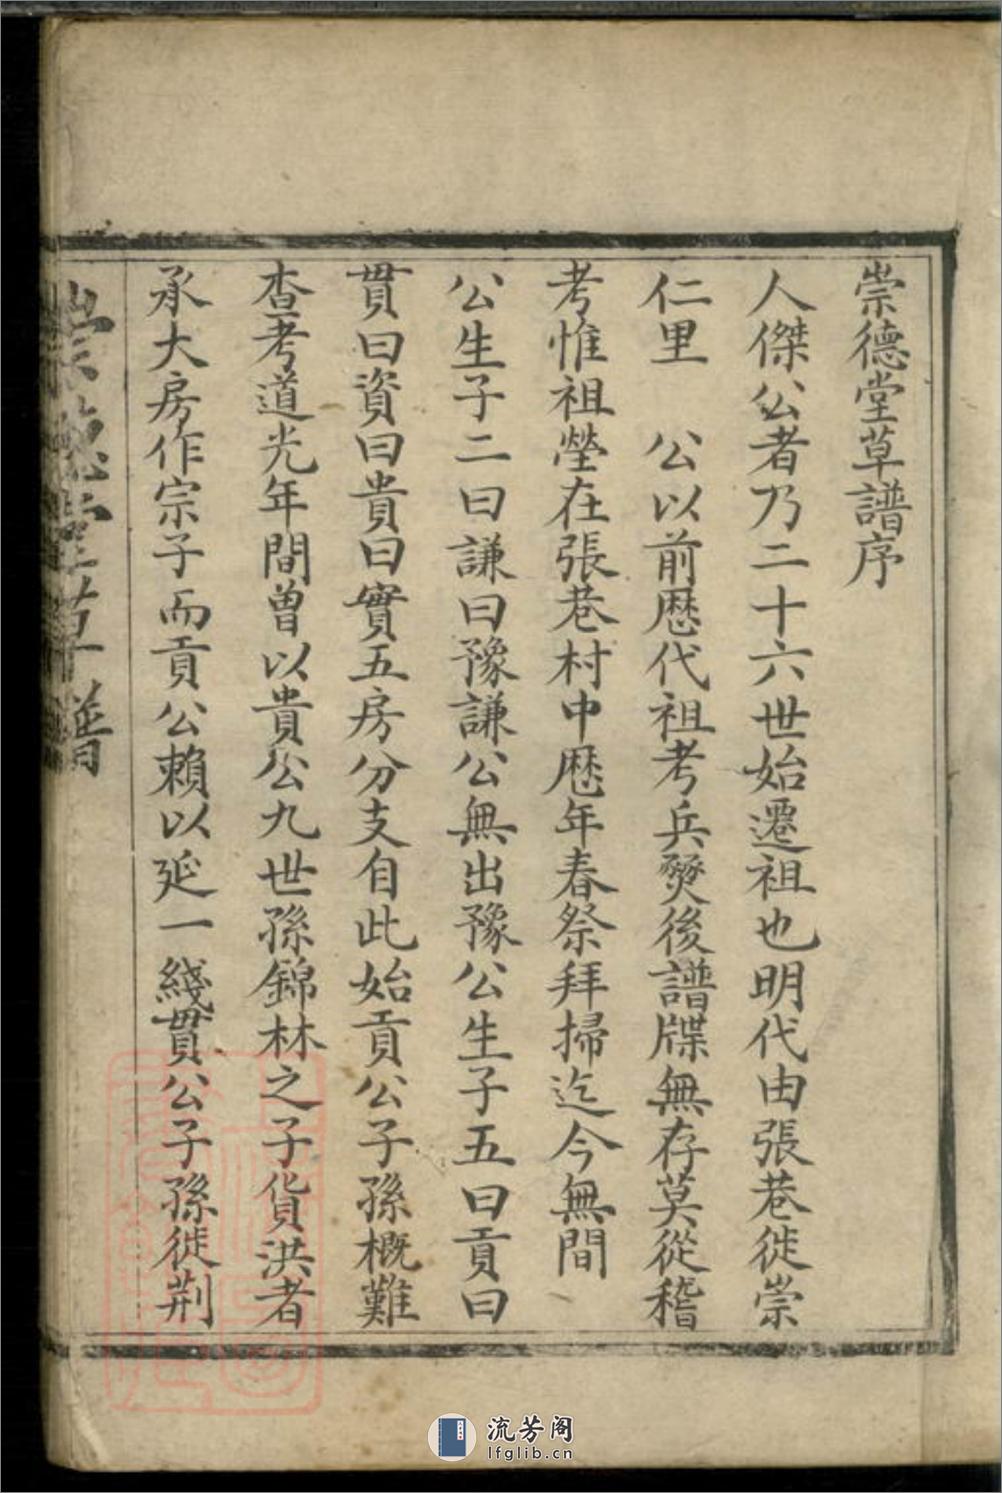 崇德堂草譜序
人傑公者乃二十六世始遷祖也明代由張巷徙崇
仁里　公以前歷代祖考兵燹後譜牒無存莫從稽
考惟祖塋在張巷村中歷年春祭拜掃迄今無間
公生子二曰謙曰豫謙公無出豫公生子五曰貢曰
貫曰資曰貴曰實五房分支自此始貢公子孫概難
查考道光年間曾以貴公九世孫錦林之子貨洪者
承大房作宗子而貢公賴以延一綫貫公子孫徙荆
崇德堂草譜
流芳阁
lfglib.cn